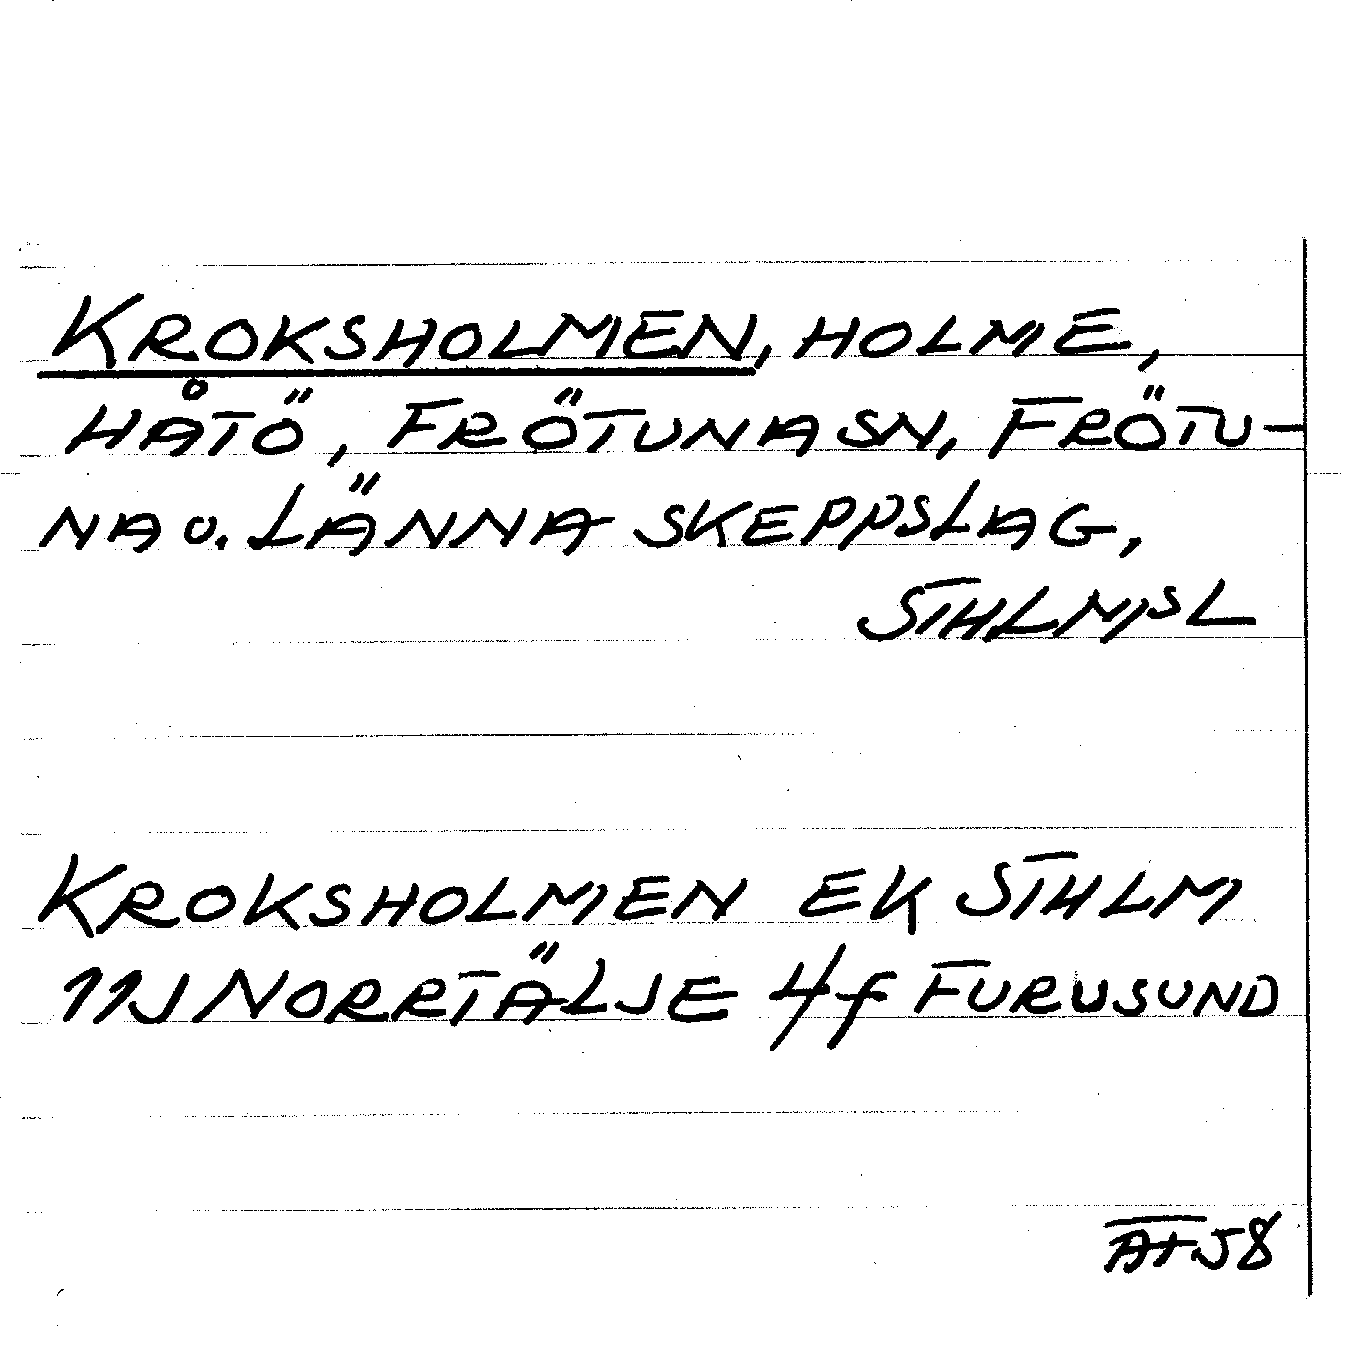 KROKSHOLMEN, HOLME,
HÅTÖ, FRÖTUNA SN, FRÖTU-
NA O. LÄNNA SKEPPSLAG,
STHLMSL
KROKSHOLMEN EK STHLM
11J NORRTÄLJE 4f FURUSUND